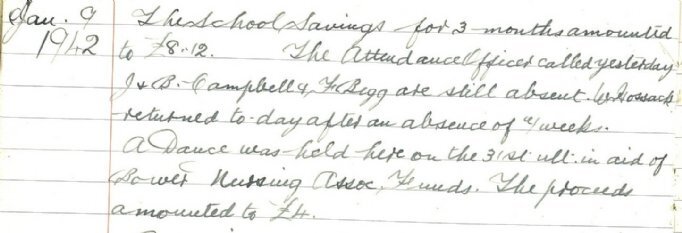 Jan. 9 The School Savings for 3 months amounted
1942 to £8.12. The Attendance Officer called yesterday
J & B. Campbell & F Begg are still absent. W Hossack
returned to-day after an absence of 4 weeks.
A Dance was held here on the 31st ult. in aid of
Bower Nursing Assoc. Funds. The proceeds
amounted to £4.